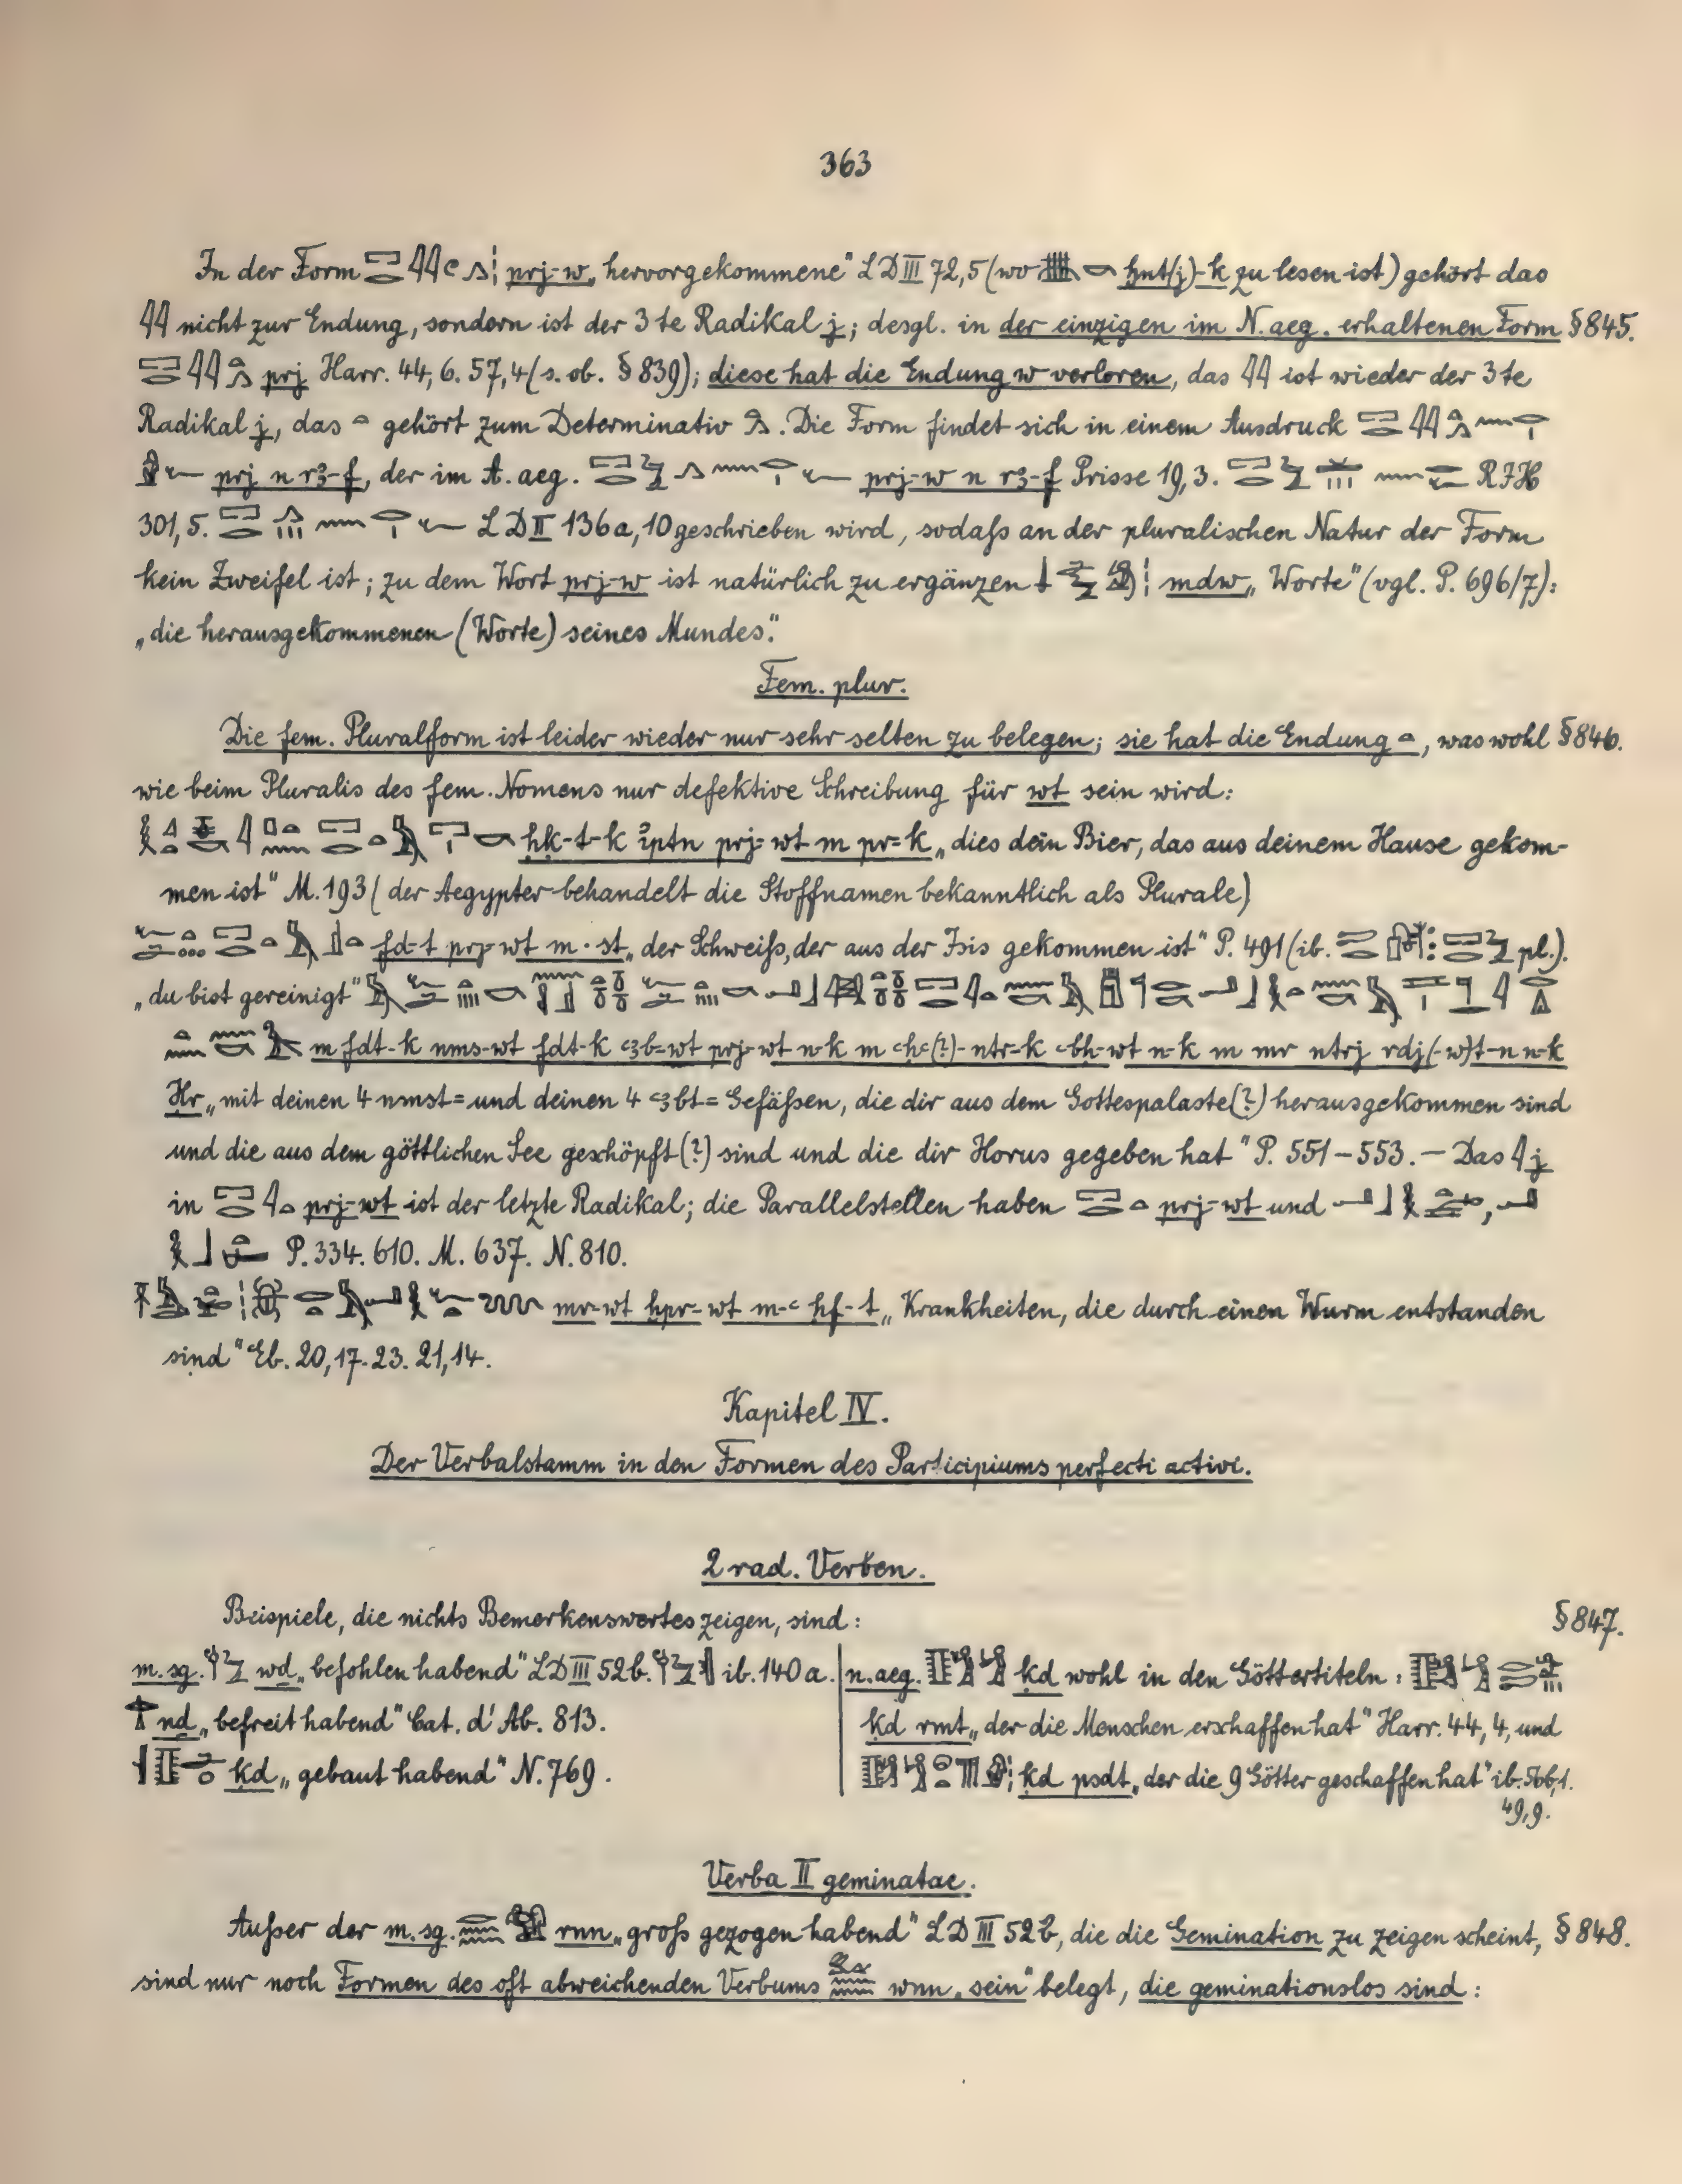 363
In der Form prj-w „hervorgekommene" LD III 72,5 (wo ḫnt(j)-k zu lesen ist) gehört das
𓇌 nicht zur Endung, sondern ist der 3te Radikal j; desgl. in der einzigen im N. aeg. erhaltenen Form §845.
prj Harr. 44,6. 57,4 (s. ob. §839); diese hat die Endung w verloren, das 𓇌 ist wieder der 3te
Radikal j, das 𓏏 gehört zum Determinativ 𓂻. Die Form findet sich in einem Ausdruck
prj n rꜣ-f, der im A. aeg. prj-w n rꜣ-f Prisse 19,3. RJH
301,5. LD II 136a,10 geschrieben wird, sodaß an der pluralischen Natur der Form
kein Zweifel ist; zu dem Wort prj-w ist natürlich zu ergänzen mdw „Worte" (vgl. P. 696/7):
„die herausgekommenen (Worte) seines Mundes".
Fem. plur.
Die fem. Pluralform ist leider wieder nur sehr selten zu belegen; sie hat die Endung 𓏏, was wohl §846.
wie beim Pluralis des fem. Nomens nur defektive Schreibung für wt sein wird:
ḥḳ-t-k ꞽptn prj-wt m pr-k „dies dein Bier, das aus deinem Hause gekom-
men ist" M. 193 (der Aegypter behandelt die Stoffnamen bekanntlich als Plurale)
fd-t prj-wt m ꞽst „der Schweiß, der aus der Isis gekommen ist" P. 491 (ib. pl.).
„du bist gereinigt"
m fdt-k nms-wt fdt-k ꜥꜣb-wt prj-wt n-k m ꜥḥꜥ(?)-ntr-k ꜥbḫ-wt n-k m mr ntrj rdj(-w)t-n n-k
Ḥr „mit deinen 4 nmst- und deinen 4 ꜥꜣbt-Gefäßen, die dir aus dem Gottespalaste(?) herausgekommen sind
und die aus dem göttlichen See geschöpft(?) sind und die dir Horus gegeben hat" P. 551-553. — Das 𓇋 j
in prj-wt ist der letzte Radikal; die Parallelstellen haben prj-wt und
P. 334. 610. M. 637. N. 810.
mr-wt ḫpr-wt m-ꜥ ḥf-t „Krankheiten, die durch einen Wurm entstanden
sind" Eb. 20,17. 23. 21,14.
Kapitel IV.
Der Verbalstamm in den Formen des Participiums perfecti activi.
2 rad. Verben.
Beispiele, die nichts Bemerkenswertes zeigen, sind: §847.
m. sg. wḏ „befohlen habend" LD III 52b. ib. 140a.
nḏ „befreit habend" Cat. d'Ab. 813.
ḳd „gebaut habend" N. 769.
n. aeg. ḳd wohl in den Göttertiteln:
ḳd rmt „der die Menschen erschaffen hat" Harr. 44,4, und
ḳd psdt „der die 9 Götter geschaffen hat" ib. 56b,1.
49,9.
Verba II geminatae.
Außer der m. sg. rnn „groß gezogen habend" LD III 52b, die die Gemination zu zeigen scheint, §848.
sind nur noch Formen des oft abweichenden Verbums wnn „sein" belegt, die geminationslos sind: